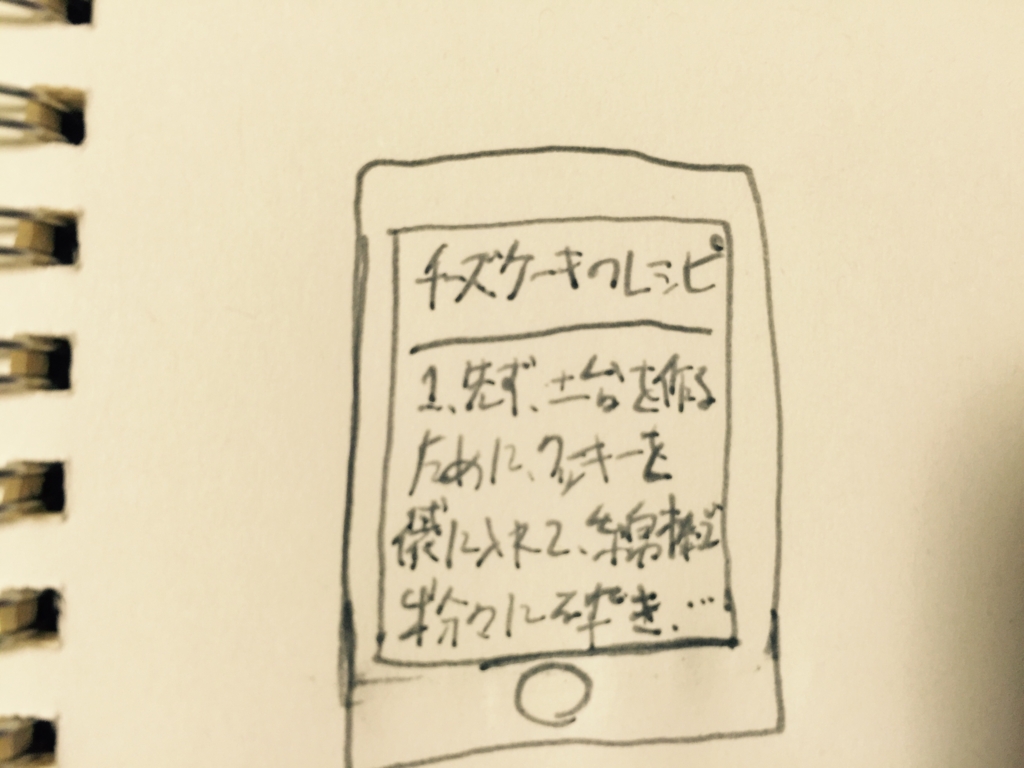 チーズケーキのレシピ
1、先ず、土台を作る
ために、クッキーを
袋に入れて、綿棒で
粉々に砕き、…